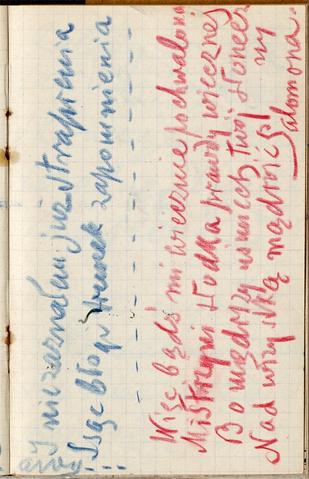 I nie zaznałem już strapienia
Ssąc błogi trunek zapomnienia
- - - - - - - - - -
Więc bądź mi wiecznie pochwalona
Mistrzyni słodka prawdy wiecznej
Bo mądrzy uśmiech Twój słonecz
ny
Nad wszystką mądrość
Salomona.